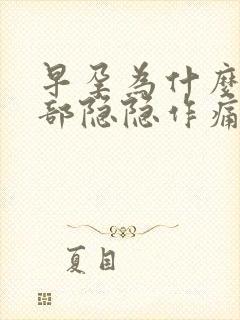 早孕为什麼
部隐隐作痛
夏目